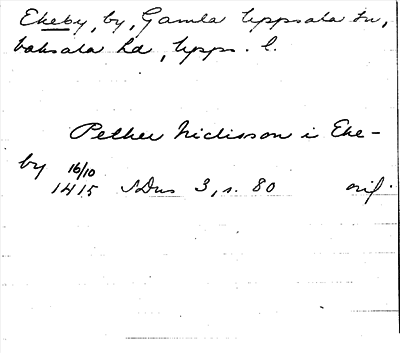 Ekeby, by, Gamla Uppsala sn,
Vaksala hd, Upps. l.
Pether Niclisson i Eke-
by 16/10
1415 SDns 3, s. 80 orig.